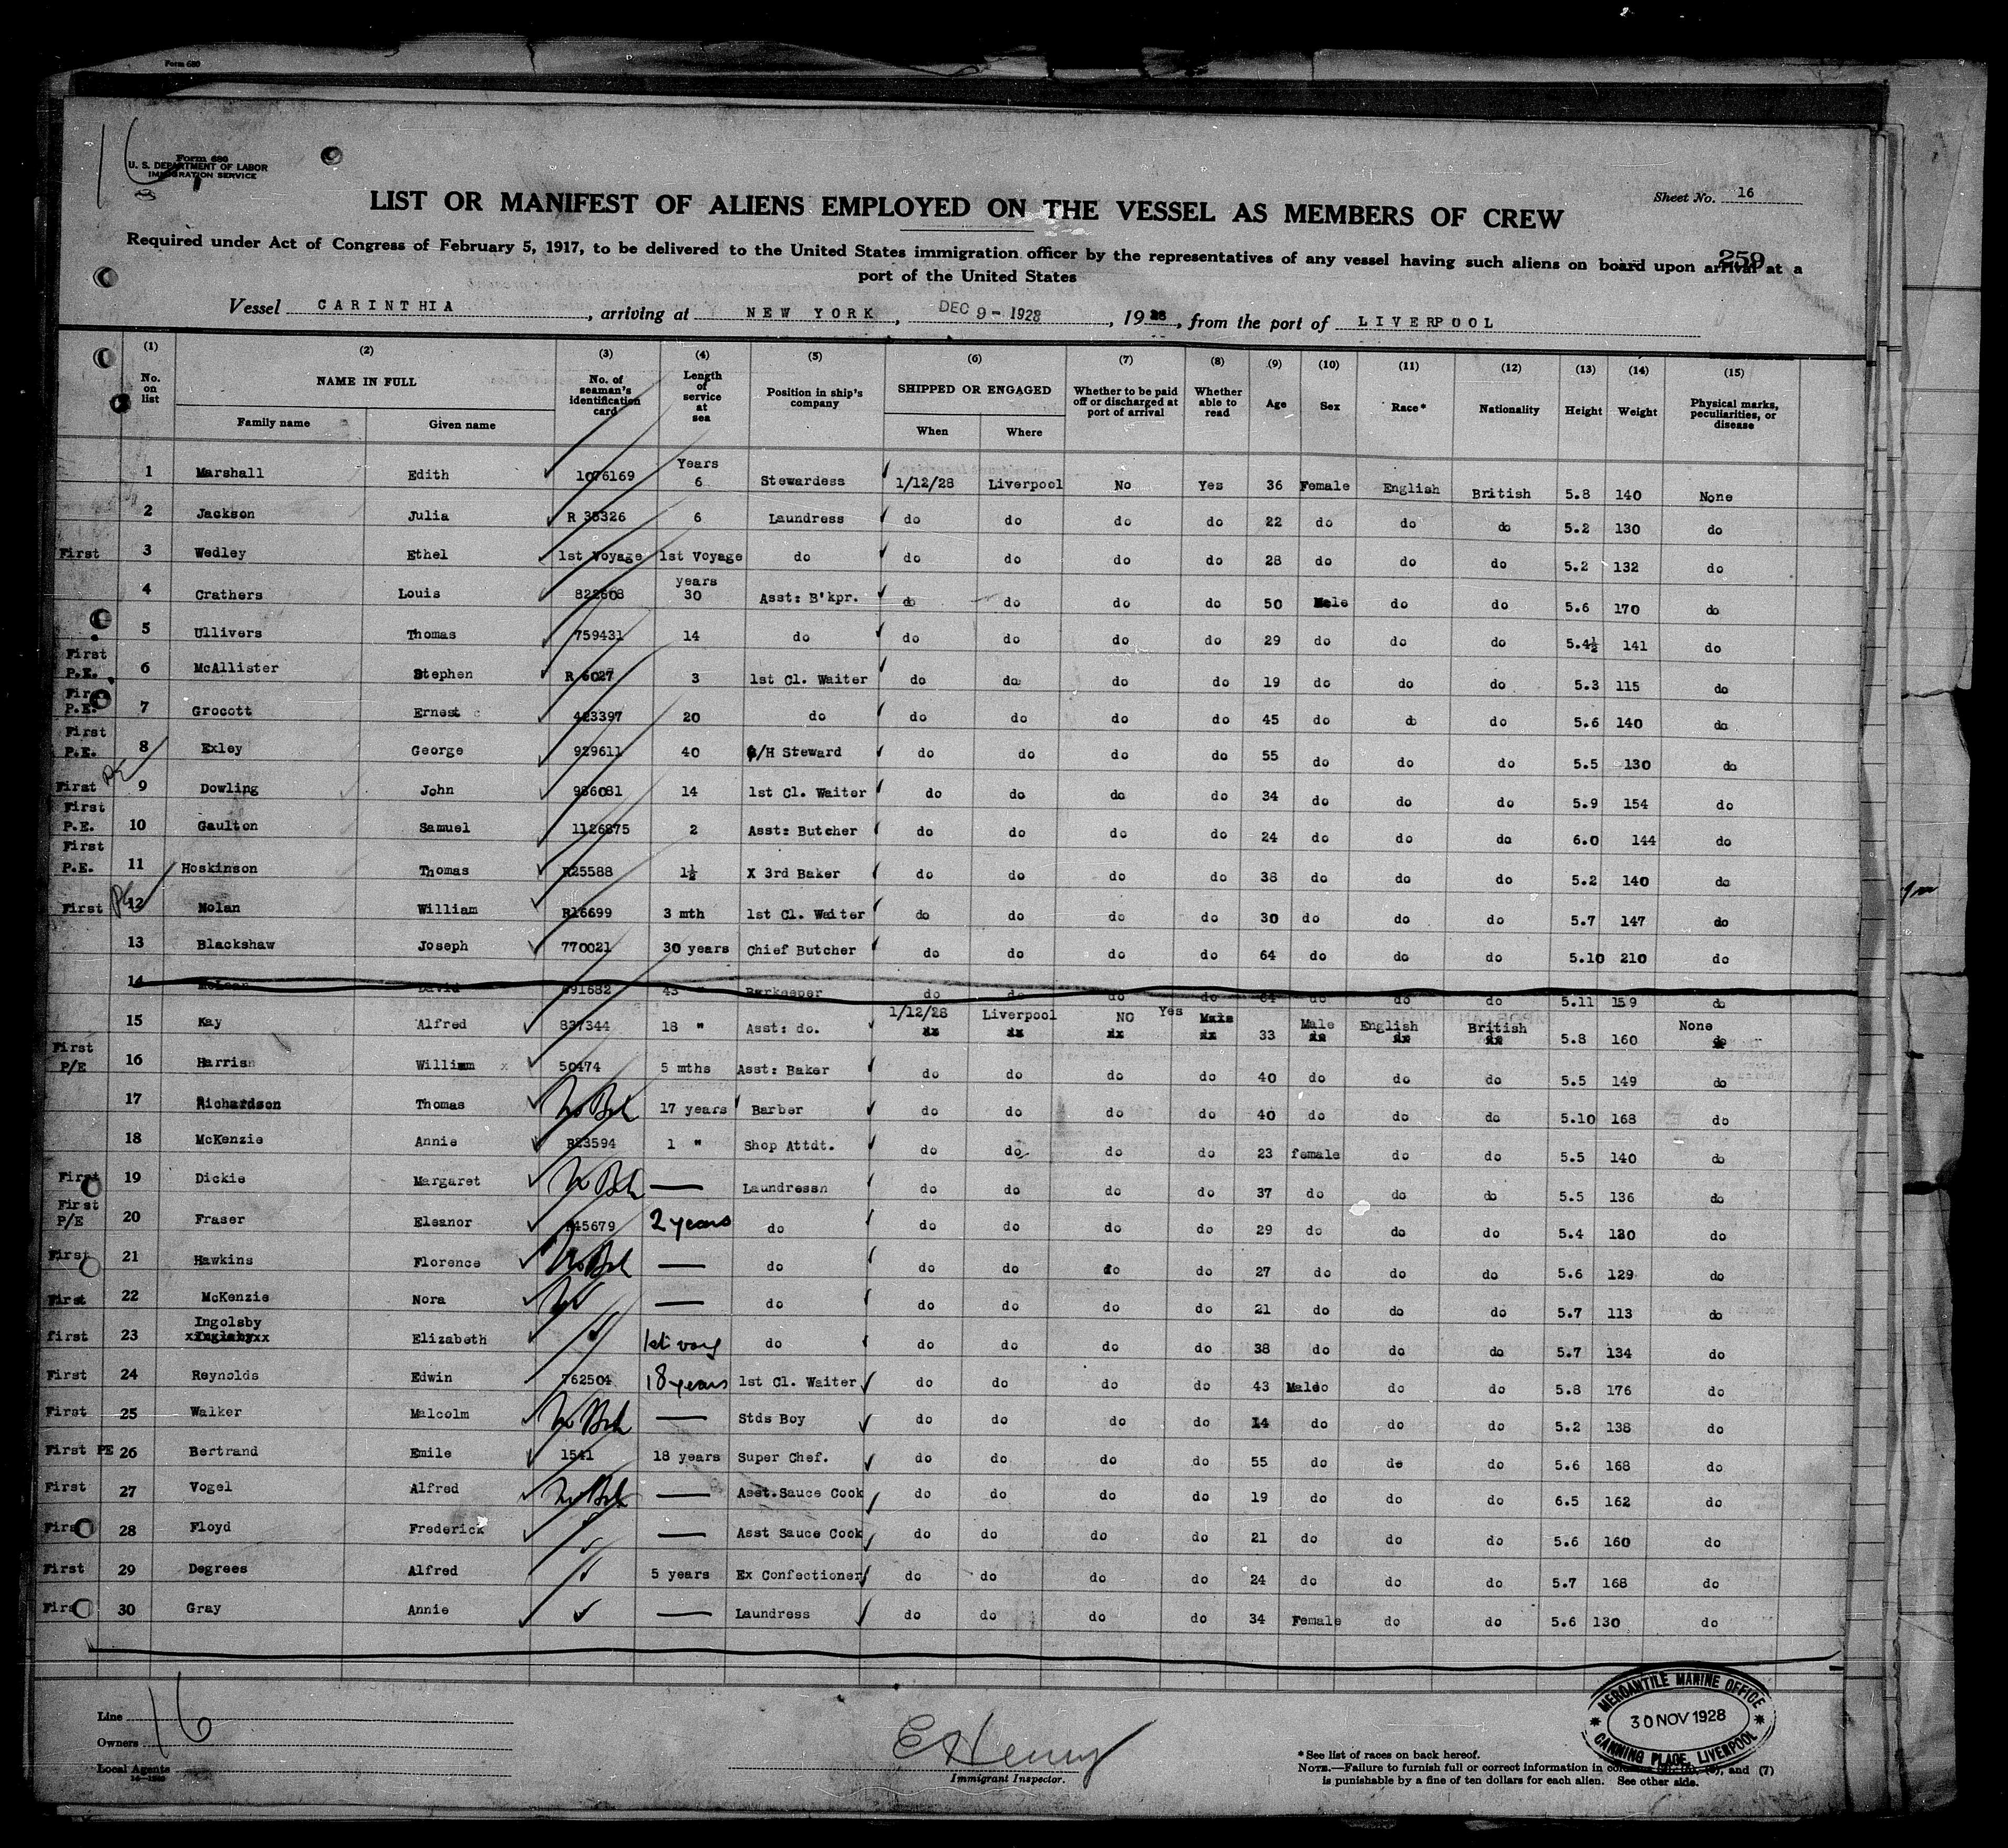 Form 680
Form 680
U. S. DEPARTMENT OF LABOR
IMMIGRATION SERVICE
16
Sheet No. 16
LIST OR MANIFEST OF ALIENS EMPLOYED ON THE VESSEL AS MEMBERS OF CREW
259
Required under Act of Congress of February 5, 1917, to be delivered to the United States immigration officer by the representatives of any vessel having such aliens on board upon arrival at a
port of the United States
Vessel CARINTHIA, arriving at NEW YORK, DEC 9 - 1928, 1928, from the port of LIVERPOOL
(1) (2) (3) (4) (5) (6) (7) (8) (9) (10) (11) (12) (13) (14) (15)
No. on list NAME IN FULL No. of seaman's identification card Length of service at sea Position in ship's company SHIPPED OR ENGAGED Whether to be paid off or discharged at port of arrival Whether able to read Age Sex Race* Nationality Height Weight Physical marks, peculiarities, or disease
Family name Given name When Where
1 Marshall Edith 1076169 Years 6 Stewardess 1/12/28 Liverpool No Yes 36 Female English British 5.8 140 None
2 Jackson Julia R 35326 6 Laundress do do do do 22 do do do 5.2 130 do
First 3 Wedley Ethel 1st Voyage 1st Voyage do do do do do 28 do do do 5.2 132 do
4 Crathers Louis 822608 years 30 Asst: B'kpr. do do do do 50 Male do do 5.6 170 do
5 Ullivers Thomas 759431 14 do do do do do 29 do do do 5.4½ 141 do
First P.E. 6 McAllister Stephen R 6027 3 1st Cl. Waiter do do do do 19 do do do 5.3 115 do
First P.E. 7 Grocott Ernest 423397 20 do do do do do 45 do do do 5.6 140 do
First P.E. 8 Exley George 929611 40 /H Steward do do do do 55 do do do 5.5 130 do
First PE 9 Dowling John 936081 14 1st Cl. Waiter do do do do 34 do do do 5.9 154 do
First P.E. 10 Gaulton Samuel 1126875 2 Asst: Butcher do do do do 24 do do do 6.0 144 do
First P.E. 11 Hoskinson Thomas R25588 1½ X 3rd Baker do do do do 38 do do do 5.2 140 do
First PE 12 Nolan William R16699 3 mth 1st Cl. Waiter do do do do 30 do do do 5.7 147 do
13 Blackshaw Joseph 770021 30 years Chief Butcher do do do do 64 do do do 5.10 210 do
14 David 691682 43 " Barkeeper do do do do 64 do do do 5.11 159 do
15 Kay Alfred 837344 18 " Asst: do. 1/12/28 Liverpool NO Yes Male 33 Male English British 5.8 160 None
First P/E 16 Harris William 50474 5 mths Asst: Baker do do do do 40 do do do 5.5 149 do
17 Richardson Thomas No Bk 17 years Barber do do do do 40 do do do 5.10 168 do
18 McKenzie Annie R23594 1 " Shop Attdt. do do do do 23 female do do 5.5 140 do
First 19 Dickie Margaret No Bk — Laundressn do do do do 37 do do do 5.5 136 do
First P/E 20 Fraser Eleanor 45679 2 years do do do do do 29 do do do 5.4 120 do
First 21 Hawkins Florence No Bk — do do do do do 27 do do do 5.6 129 do
First 22 McKenzie Nora — do do do do do 21 do do do 5.7 113 do
Ingolsby
first 23 xxInglsbyxx Elizabeth 1st voy do do do do do 38 do do do 5.7 134 do
First 24 Reynolds Edwin 762504 18 years 1st Cl. Waiter do do do do 43 Maledo do do 5.8 176 do
First 25 Walker Malcolm No Bk — Stds Boy do do do do 14 do do do 5.2 138 do
First PE 26 Bertrand Emile 1541 18 years Super Chef. do do do do 55 do do do 5.6 168 do
First 27 Vogel Alfred No Bk — Asst.Sauce Cook do do do do 19 do do do 6.5 162 do
First 28 Floyd Frederick — Asst Sauce Cook do do do do 21 do do do 5.6 160 do
First 29 Degrees Alfred 5 years Ex Confectioner do do do do 24 do do do 5.7 168 do
First 30 Gray Annie — Laundress do do do do 34 Female do do 5.6 130 do
Line
Owners
Local Agents
16
E Henry
Immigrant Inspector.
MERCANTILE MARINE OFFICE
30 NOV 1928
CANNING PLACE, LIVERPOOL
*See list of races on back hereof.
NOTE.—Failure to furnish full or correct information in columns and (7)
is punishable by a fine of ten dollars for each alien. See other side.